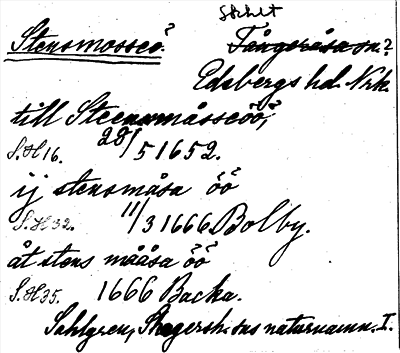 Skht
Stensmosseö? Tångeråsa sn?
Edsbergs hd. Nrk.
till Steensmåsseöö,
S.H 16. 28/5 1652.
ij stensmåsa öö
S.H 32. 11/3 1666 Bolby.
åt stens määsa öö
S.H 35. 1666 Backa.
Sahlgren, Skagersh.tns naturnamn. I.